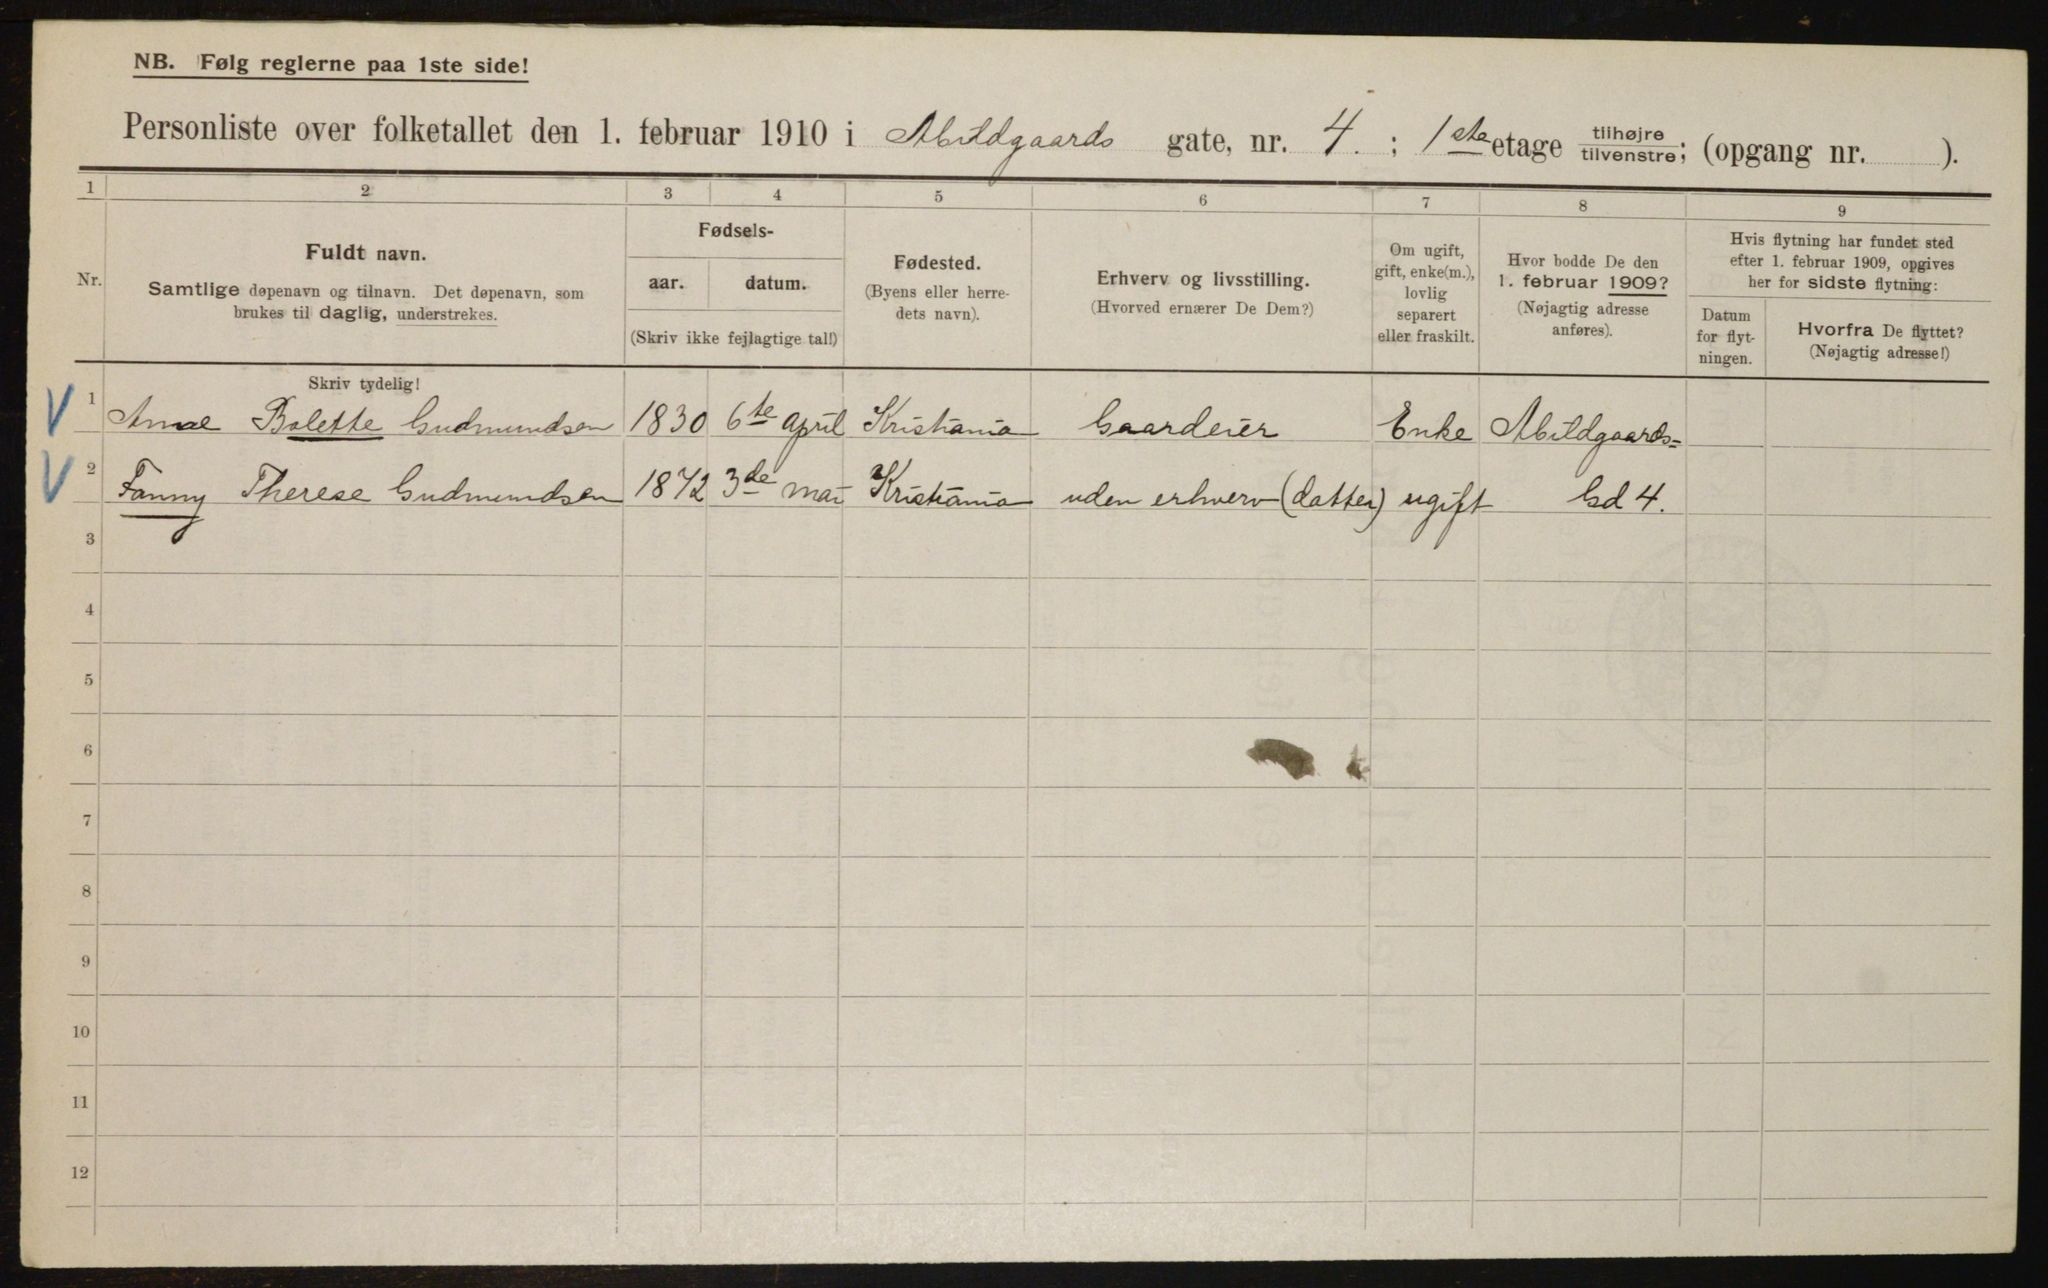 NB. Følg reglerne paa 1ste side!
Personliste over folketallet den 1. februar 1910 i Abildgaards gate, nr. 4. ; 1ste etage tilhøjre tilvenstre; (opgang nr. ).
1 2 3 4 5 6 7 8 9
Nr.
Fuldt navn.
Samtlige døpenavn og tilnavn. Det døpenavn, som
brukes til daglig, understrekes.
Fødsels-
aar. datum.
(Skriv ikke fejlagtige tal!)
Fødested.
(Byens eller herre-
dets navn).
Erhverv og livsstilling.
(Hvorved ernærer De Dem?)
Om ugift,
gift, enke(m.),
lovlig
separert
eller fraskilt.
Hvor bodde De den
1. februar 1909?
(Nøjagtig adresse
anføres).
Hvis flytning har fundet sted
efter 1. februar 1909, opgives
her for sidste flytning:
Datum
for flyt-
ningen.
Hvorfra De flyttet?
(Nøjagtig adresse!)
Skriv tydelig!
V 1 Bolette Gudmundsen 1830 6te april Kristiania Gaardeier Enke Abildgaards=
V 2 Fanny Therese Gudmundsen 1872 3de mai Kristiania uden erhverv (datter) ugift Gd 4.
3
4
5
6
7
8
9
10
11
12